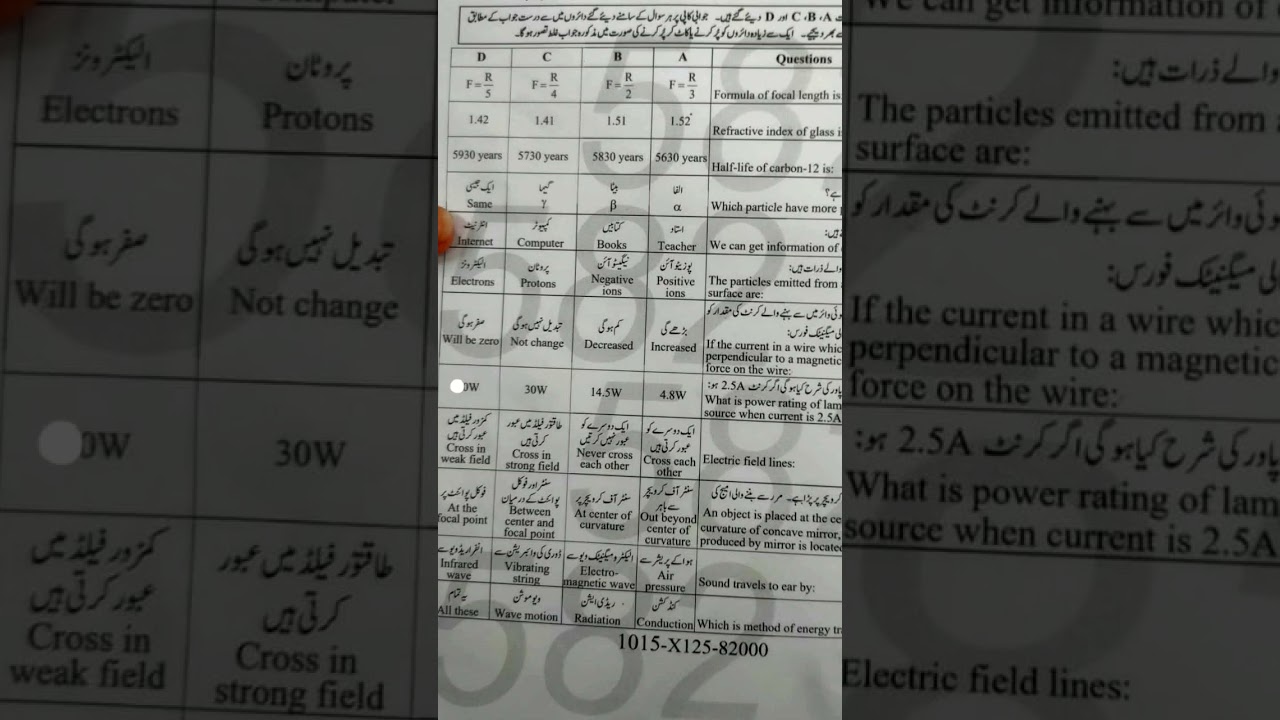 C ،B ،A اور D دیئے گئے ہیں۔ جوابی کاپی پر ہر سوال کے سامنے دیئے گئے دائروں میں سے درست جواب کے مطابق
بھر دیجیے۔ ایک سے زیادہ دائروں کو پُر کرنے یا کاٹ کر پُر کرنے کی صورت میں مذکورہ جواب غلط تصور ہوگا۔
D C B A Questions
F = R/5 F = R/4 F = R/2 F = R/3 Formula of focal length is
1.42 1.41 1.51 1.52 Refractive index of glass i
5930 years 5730 years 5830 years 5630 years Half-life of carbon-12 is:
ایک جیسی گیما بیٹا الفا ہے؟
Same γ β α Which particle have more
انٹرنیٹ کمپیوٹر کتابیں استاد
Internet Computer Books Teacher We can get information of
الیکٹرونز پروٹان نیگیٹو آئن پوزیٹو آئن والے ذرات ہیں:
Electrons Protons Negative Positive The particles emitted from
ions ions surface are:
وئی وائر میں سے بہنے والے کرنٹ کی مقدار کو
صفر ہوگی تبدیل نہیں ہوگی کم ہوگی بڑھے گی لی میگنیٹک فورس:
Will be zero Not change Decreased Increased If the current in a wire whic
perpendicular to a magnetic
force on the wire:
پاور کی شرح کیا ہوگی اگر کرنٹ 2.5A ہو:
0W 30W 14.5W 4.8W What is power rating of lam
source when current is 2.5A
کمزور فیلڈ میں طاقتور فیلڈ میں عبور ایک دوسرے کو ایک دوسرے کو
عبور کرتی ہیں کرتی ہیں عبور نہیں کرتیں عبور کرتی ہیں
Cross in Cross in Never cross Cross each Electric field lines:
weak field strong field each other other
فوکل پوائنٹ پر سنٹر اور فوکل سنٹر آف کرویچر پر سنٹر آف کرویچر
پوائنٹ کے درمیان سے باہر
At the Between At center of Out beyond An object is placed at the ce
focal point center and curvature center of curvature of concave mirror,
focal point curvature produced by mirror is locate
انفراریڈ ویو سے ڈوری کی وائبریشن سے الیکٹرو میگنیٹک ویو سے ہوا کے پریشر سے
Infrared Vibrating Electro- Air Sound travels to ear by:
wave string magnetic wave pressure
یہ تمام ویو موشن ریڈی ایشن کنڈکشن
All these Wave motion Radiation Conduction Which is method of energy tra
1015-X125-82000